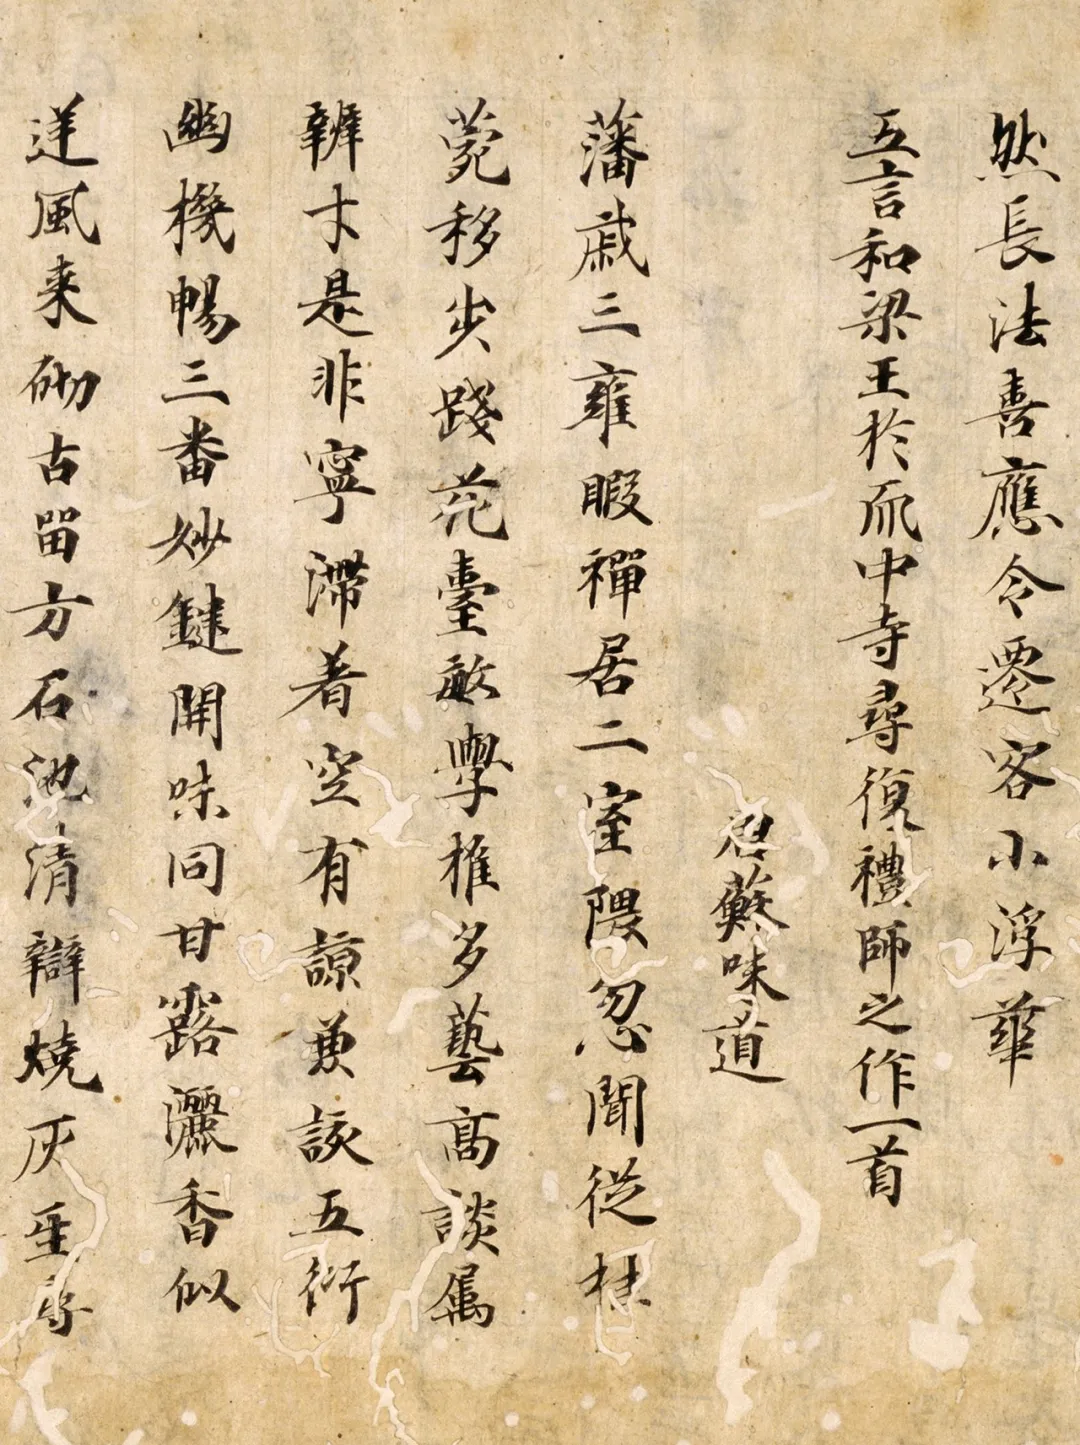 然長法善應令遷客小浮華
五言和梁王於京中寺尋復禮師之作一首
蘇味道
藩戚三雍暇禪居二室隈忽聞從桂
菀移步踐花臺敏學推多藝高談屬
辨才是非寧滯著空有諒兼該五衍
幽機暢三番妙鍵開味同甘露灑香似
逆風来砌古留方石池清辯燒灰